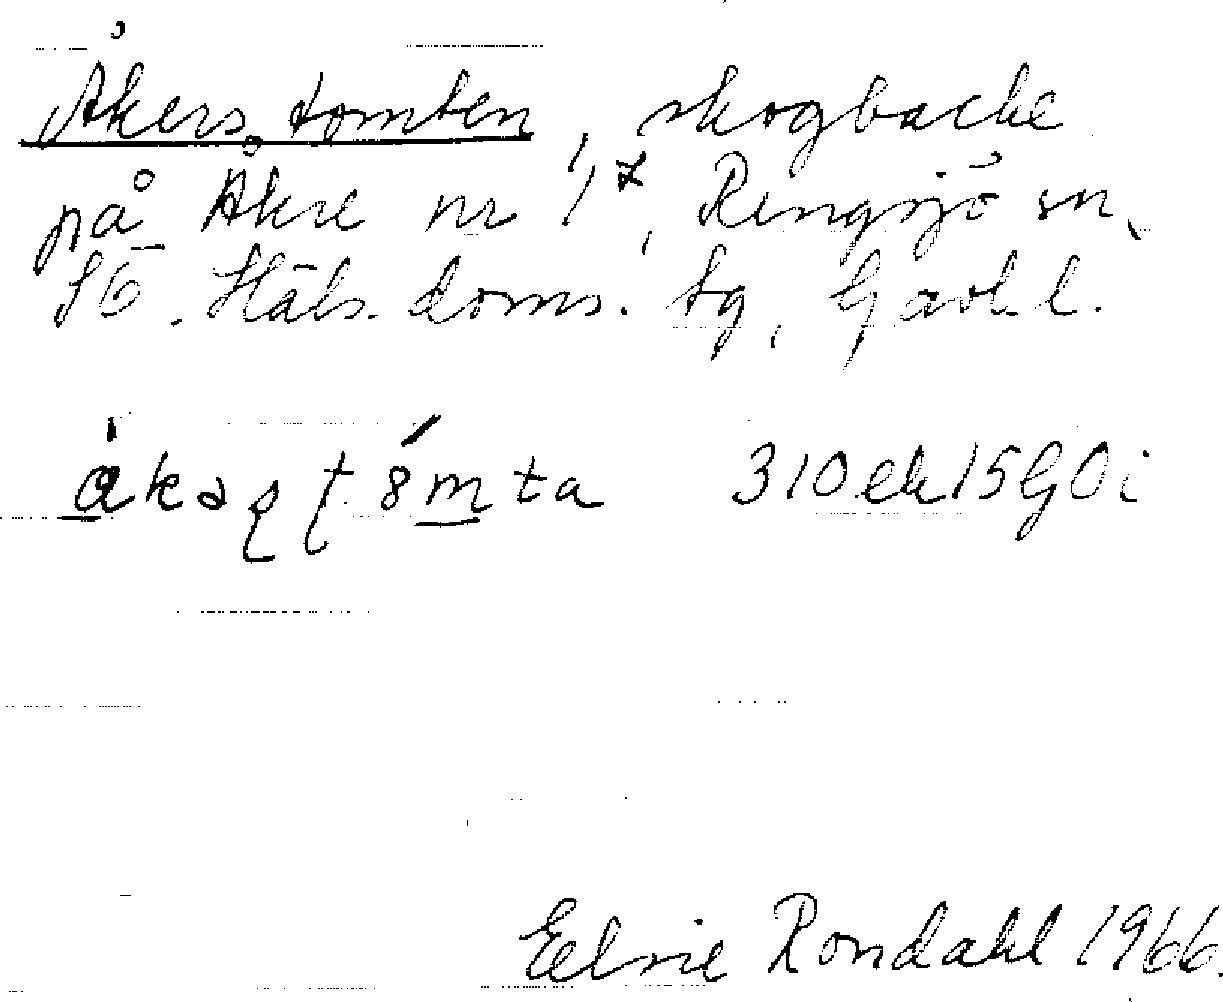 Åkers tomten, skogbacke
på Åkre nr 1,7, Rengsjö sn,
SV. Häls. doms. tg, Gävl. l.
310ek15GOi
Elvie Rondahl 1966.